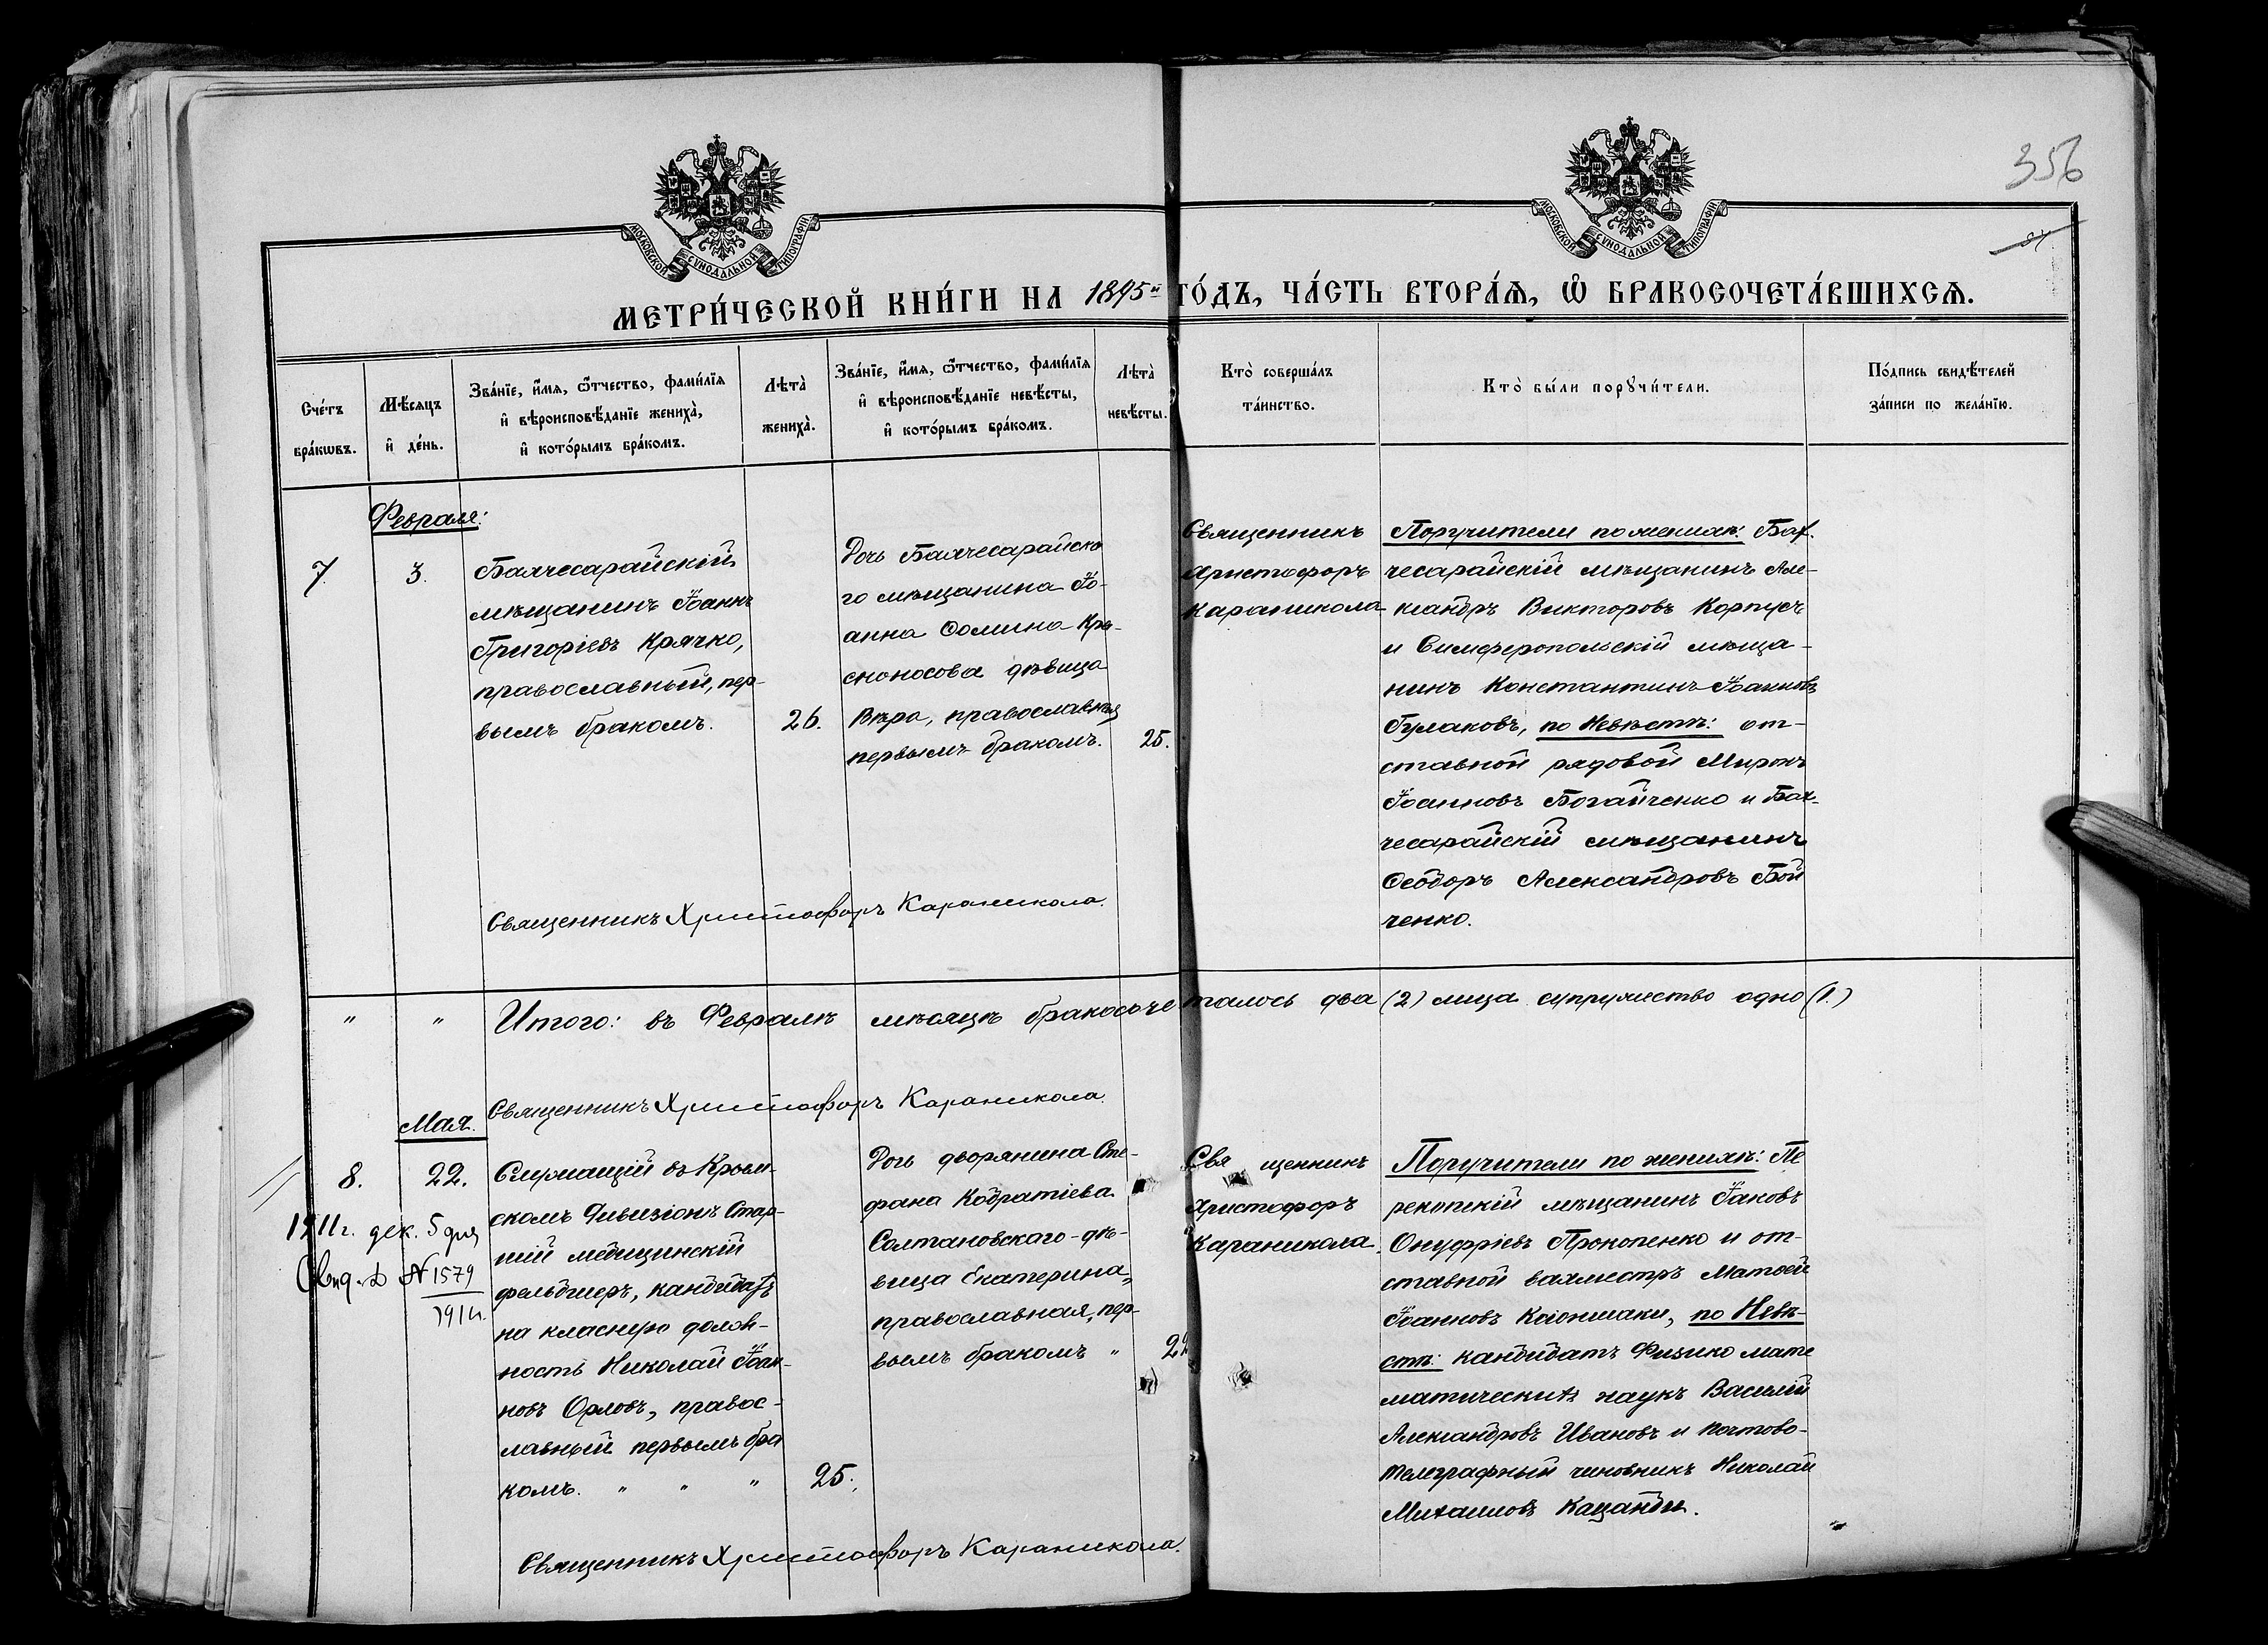 356
МОСКОВСКОЙ СѴНОДАЛЬНОЙ ТИПОГРАФІИ
МОСКОВСКОЙ СѴНОДАЛЬНОЙ ТИПОГРАФІИ
МЕТРИ́ЧЕСКОЙ КНИ́ГИ НА 1895й ГО́ДЪ, ЧА́СТЬ ВТОРА́Ѧ, Ѽ БРАКОСОЧЕТА́ВШИХСѦ.
Сче́тъ
бра́кѡвъ.
Мѣ́сяцъ
и҆ де́нь.
Зва́нїе, и҆́мя, ѻ҆́тчество, фами́лїя
и҆ вѣроисповѣ́данїе жениха̀,
и҆ кото́рымъ бра́комъ.
Лѣта̀
жениха̀.
Зва́нїе, и҆́мя, ѻ҆́тчество, фами́лїя
и҆ вѣроисповѣ́данїе невѣ́сты,
и҆ кото́рымъ бра́комъ.
Лѣта̀
невѣ́сты.
Кто̀ соверша́лъ
та́инство.
Кто̀ бы́ли порꙋчи́тели.
По́дпись свидѣ́телей
за́писи по жела́нїю.
Февраля:
7.
3.
Бахчесарайскій
мѣщанинъ Іоаннъ
Григоріевъ Крячко,
православный, пер-
вымъ бракомъ.
26.
Дочь Бахчесарайска
го мѣщанина Іо-
анна Ѳомина Кра-
сноносова дѣвица
Вѣра, православная
первымъ бракомъ.
25.
Священникъ
Христофоръ
Караникола
Поручители по женихѣ: Бах.
чесарайскій мѣщанинъ Але-
ксандръ Викторовъ Корпусъ
и Симферопольскій мѣща-
нинъ Константинъ Іоанновъ
Гулаковъ, по Невѣстѣ: от-
ставной рядовой Миронъ
Іоанновъ Богайченко и Бах-
чесарайскій мѣщанинъ
Ѳеодоръ Александровъ Бой
ченко.
Священникъ Христофоръ Караникола.
" " Итого: въ Февралѣ мѣсяцѣ бракосочеталось два (2) лица супружество одно (1.)
Священникъ Христофоръ Караникола.
Мая.
8.
22.
1911г. дек. 5 дня
№ 1579
1911г.
Служащій въ Крым-
скомъ Дивизіонѣ Стар-
шій медицинскій
фельдшеръ, кандидатъ
на класную долж-
ность Николай Іоан-
новъ Орловъ, правос-
лавный первымъ бра
комъ. " " "
25.
Дочь дворянина Сте-
фана Кодратіева
Солтановскаго - дѣ-
вица Екатерина,
православная, пер-
вымъ бракомъ "
22
Священникъ
Христофоръ
Караникола.
Поручители по женихѣ: Пе
рекопскій мѣщанинъ Іаковъ
Онуфріевъ Прокопенко и от-
ставной вахмистръ Матвей
Іоанновъ по Невѣ-
стѣ: кандидатъ Физико мате
матическихъ наукъ Василій
Александровъ Ивановъ и почтово-
телеграфный чиновникъ Николай
Михаиловъ Кацанди.
Священникъ Христофоръ Караникола.